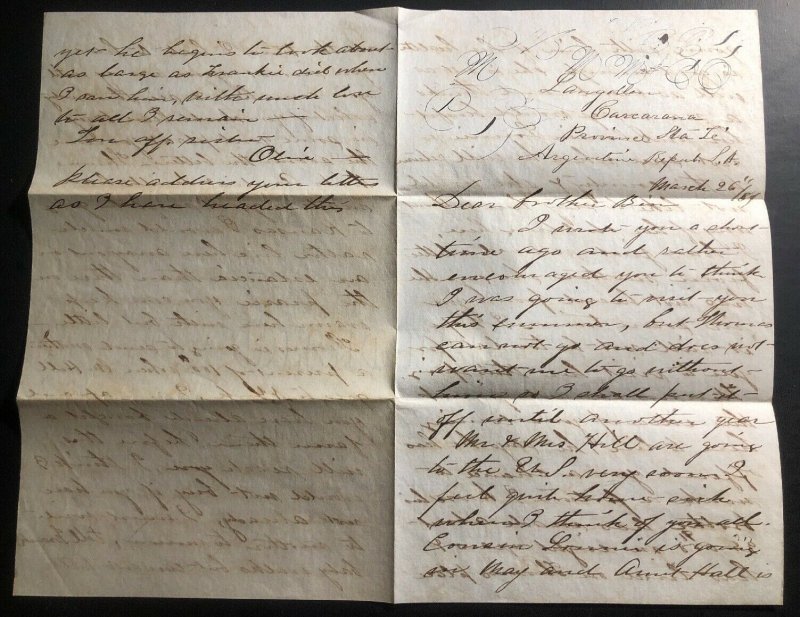 yet he begins to look about
as large as Frankie did when
I saw him, with much love
to all I remain
Your aff sister
Olive
please address your letters
as I have headed this
Langollen
Carcarana
Province Sta Fé
Argentine Repub S.A.
March 26th
Dear brother
I wrote you a short
time ago and rather
encouraged you to think
I was going to visit you
this summer, but Thomas
can not go and does not
want me to go without
him so I shall put it
off until another year
Mr & Mrs Hill are going
to the U.S. very soon. I
feel quite home sick
when I think of you all.
Cousin is going
in May and Aunt Hall is